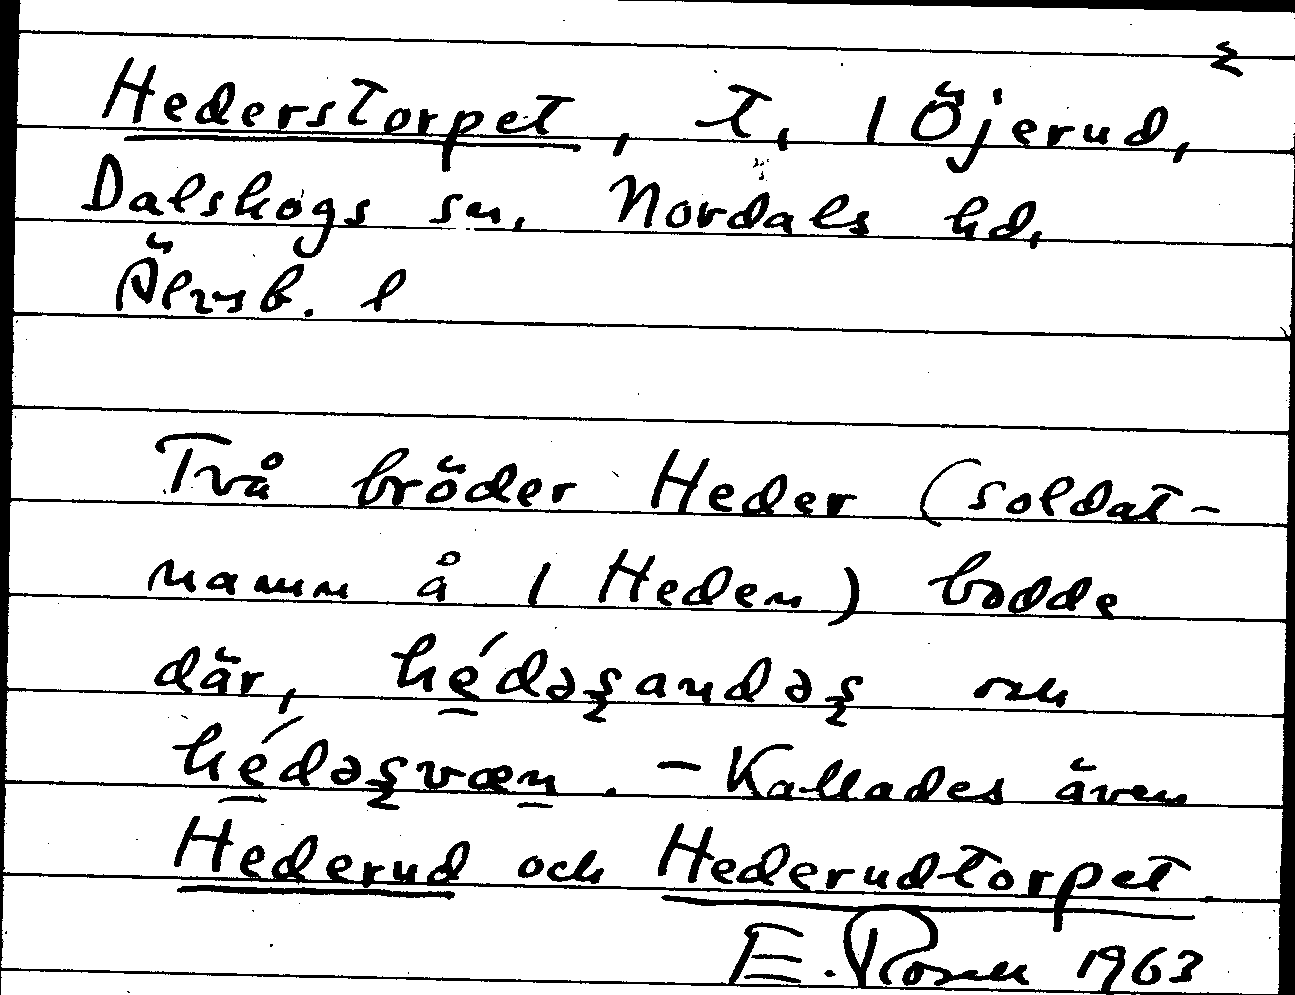 Hederstorpet, t, 1 Öjerud,
Dalskogs sn, Nordals hd,
Älvsb. l
Två bröder Heder (soldat-
namn å 1 Heden) bodde
där, hé̱dəʂandəʂ och
hé̱dəʂvæn̲. – Kallades även
Hederud och Hederudtorpet
E. Rosell 1963